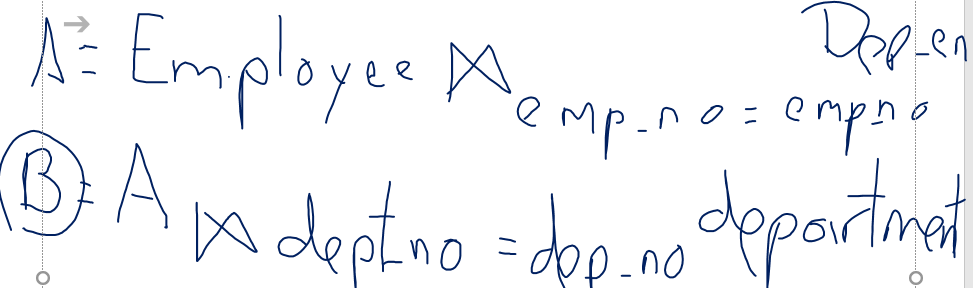 A = Employee ⋈ emp_no = emp_no Dep_en
B = A ⋈ dept_no = dep_no departmet